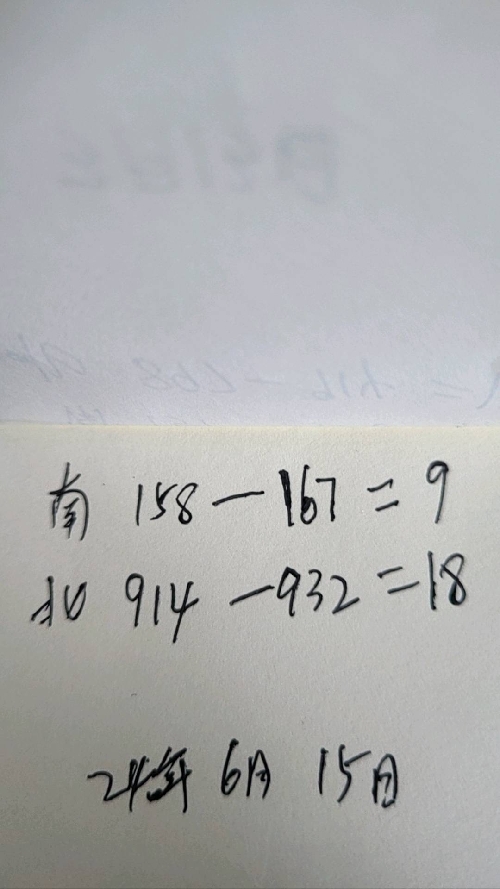 南 158－167＝9
北 914－932＝18
24年 6月 15日